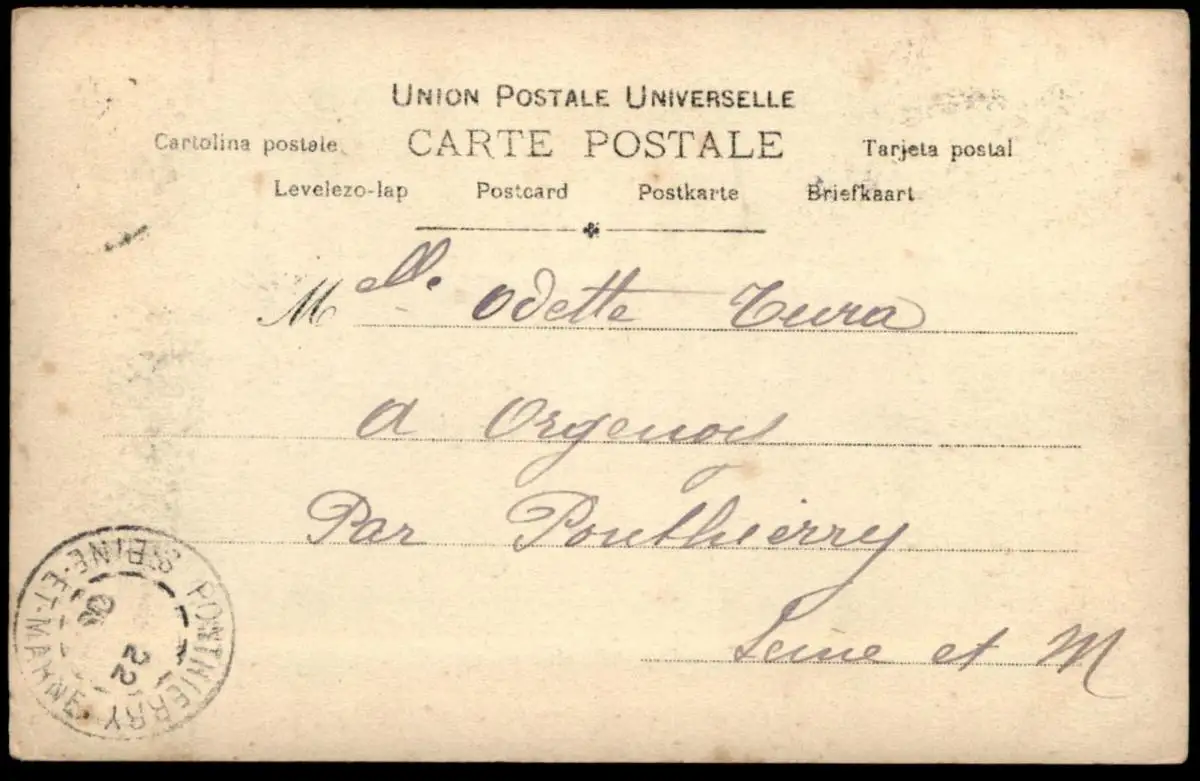 UNION POSTALE UNIVERSELLE
Cartolina postale CARTE POSTALE Tarjeta postal
Levelezo-lap Postcard Postkarte Briefkaart
Melle. Odette Tura
a Orgenoy
Par Ponthierry
Seine et M
PONTHIERRY SEINE-ET-MARNE
22
06